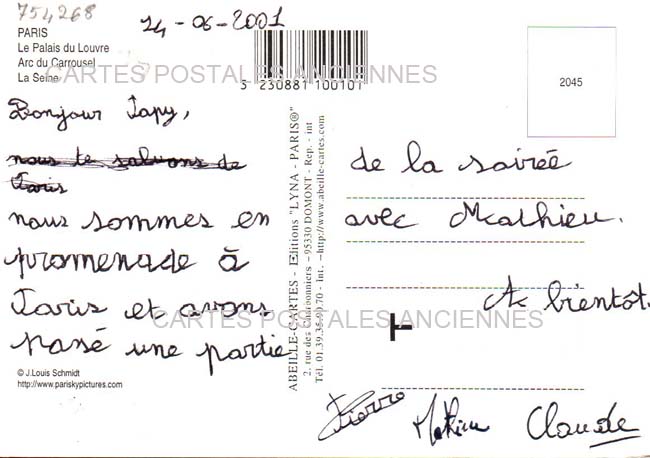 754268
14-06-2001
PARIS
Le Palais du Louvre
Arc du Carrousel
La Seine
CARTES POSTALES ANCIENNES
5 230881 100101
2045
Bonjour Papy,
nous te saluons de
Paris
nous sommes en
promenade à
Paris et avons
passé une partie
CARTES POSTALES ANCIENNES
© J.Louis Schmidt
http://www.pariskypictures.com
ABEILLE-CARTES - Editions "LYNA - PARIS®"
2, rue des Charbonniers - 95330 DOMONT - Rep. - int
Tél. 01.39.35.90.70 - int. - http://www.abeille-cartes.com
de la soirée
avec Mathieu.
A bientôt.
Pierre Mathieu Claude